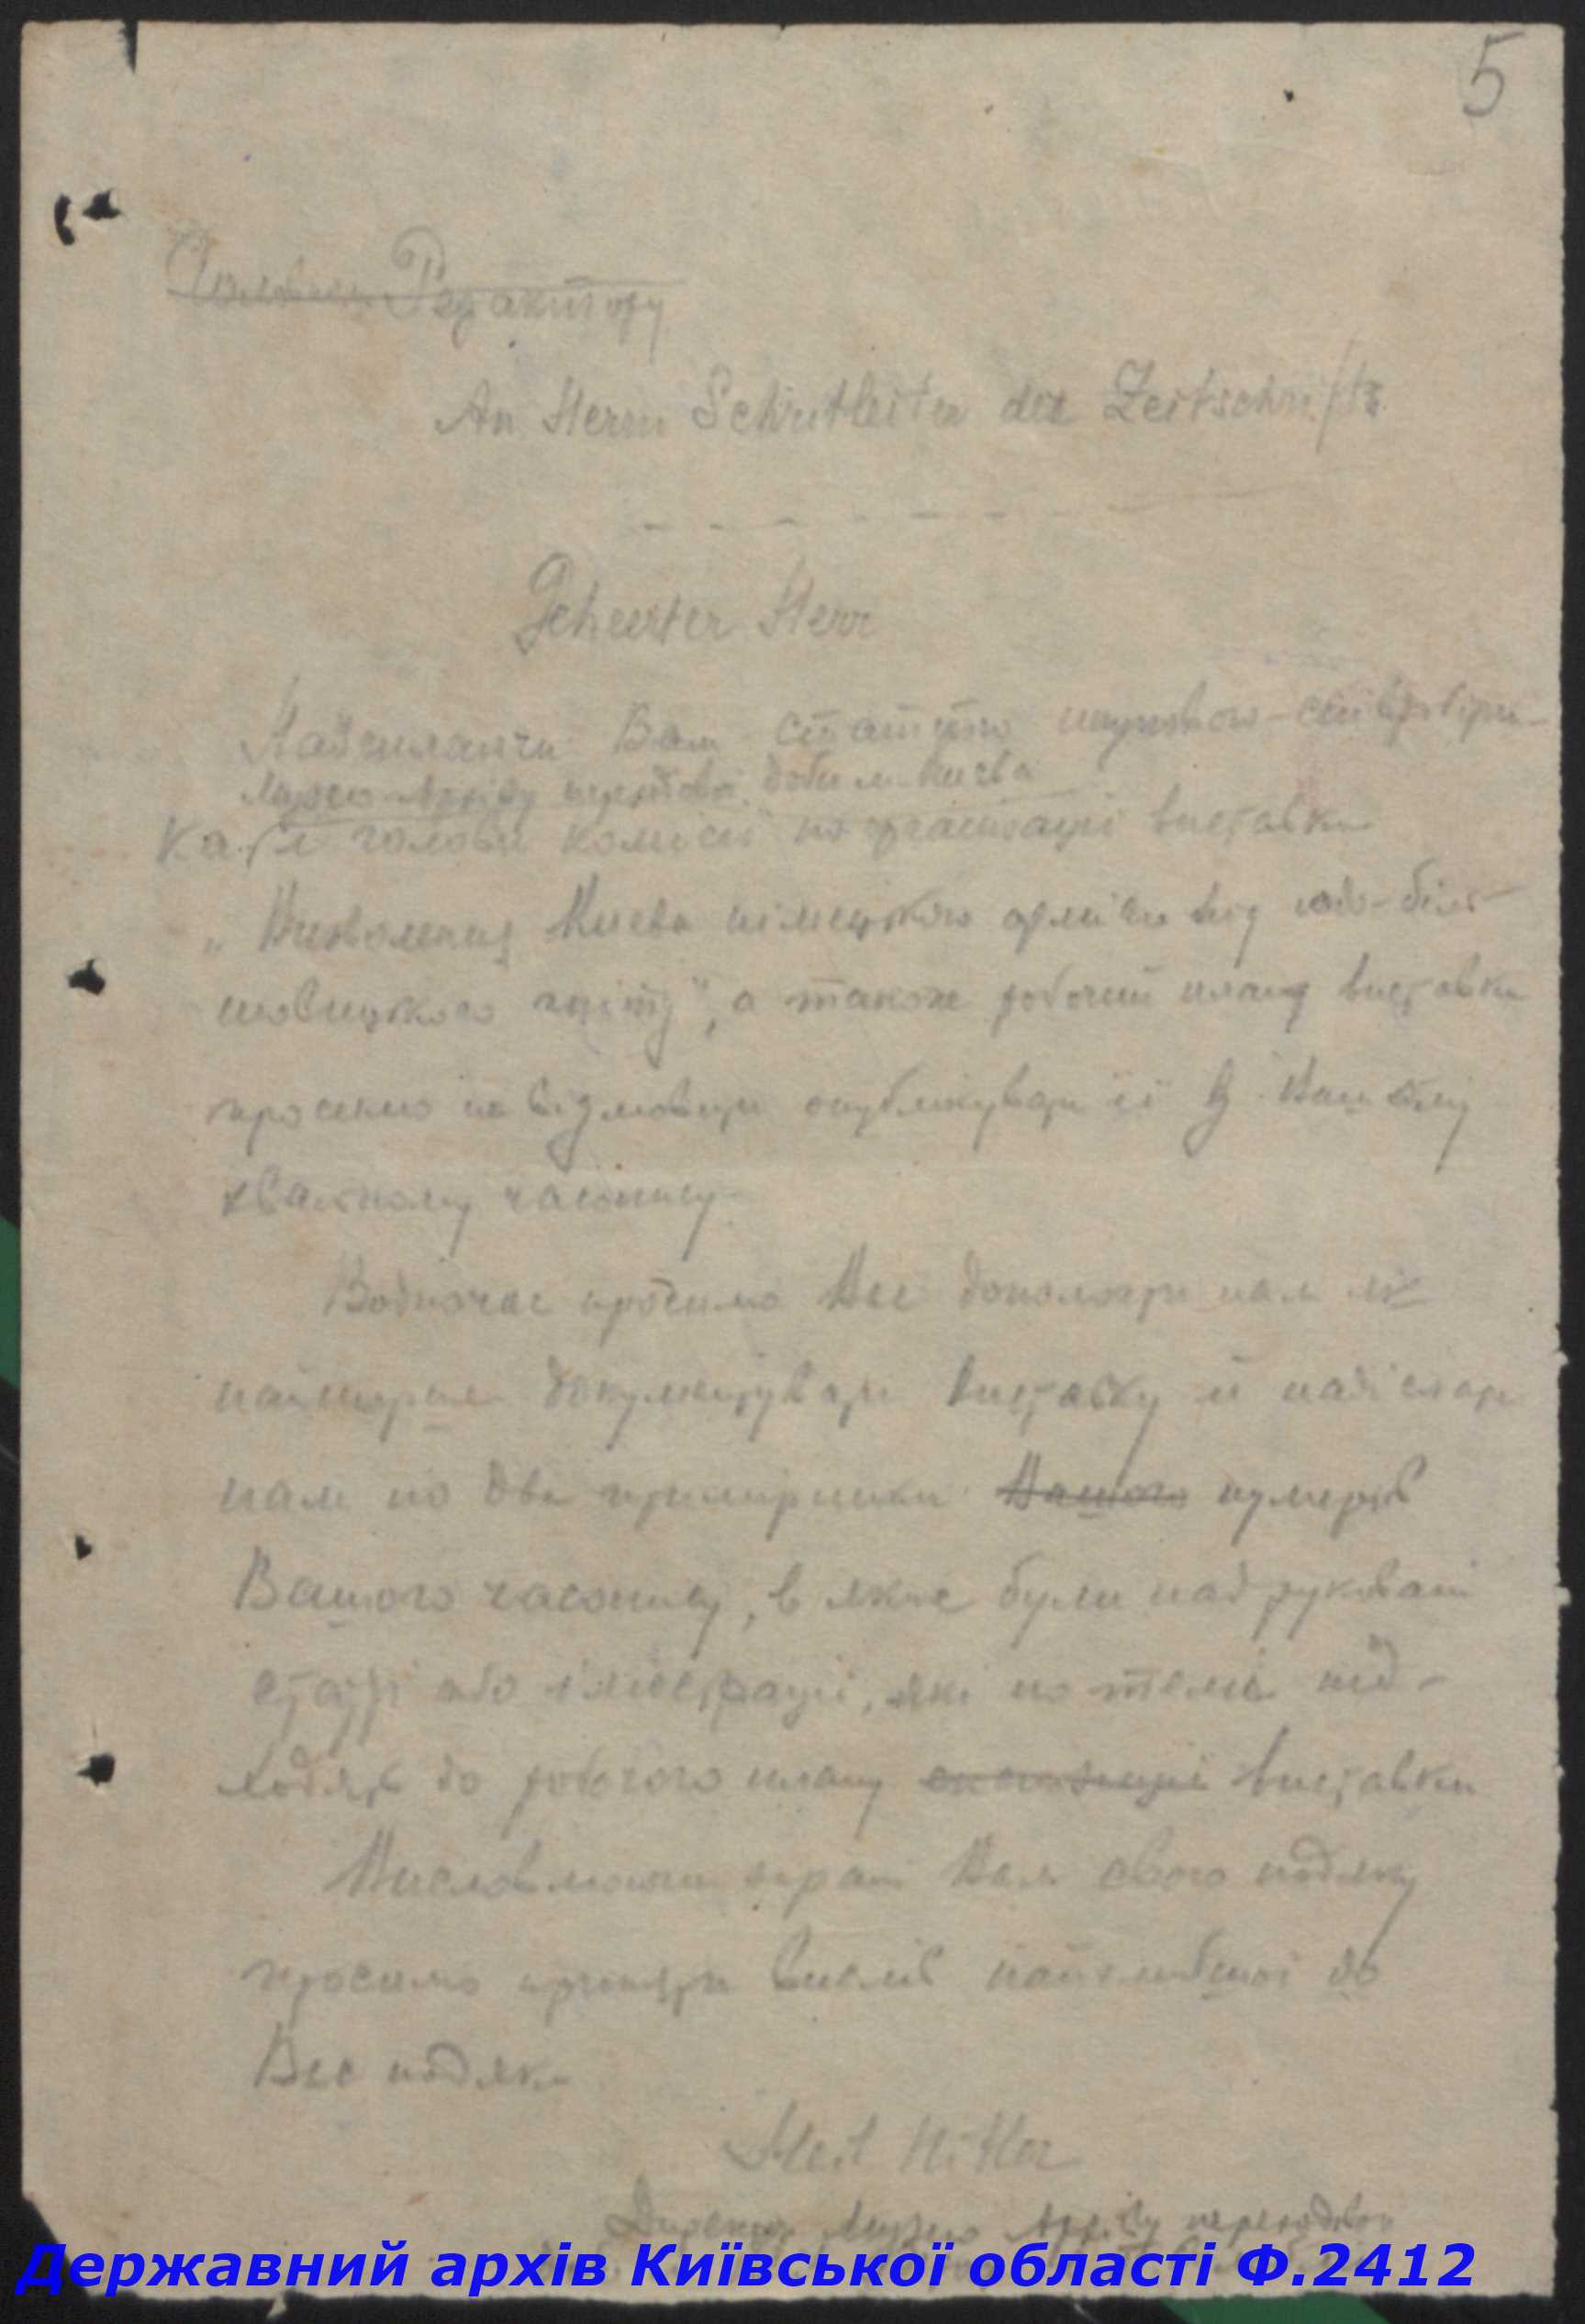 5
Редактору
An Herrn Schriftleiter der Zeitschrift
Geheerter Herr
Надсилаючи Вам статтю наукового співробітни-
Музею-Архіву переходової доби м. Києва
ка і голови комісії по організації виставки
„Визволення Києва німецькою армією від жидо-біль-
шовицького гніту", а також робочий план виставки
просимо не відмовити опублікувати її в Вашому
часопису.
Водночас просимо Вас допомогти нам як
найширше документувати виставку й надіслати
нам по два примірники Вашого нумерів
Вашого часопису, в яких були надруковані
статті або ілюстрації, які по темі під-
ходять до робочого плану експозиції виставки
Висловлюючи Вам свою подяку
просимо прийняти вислів найглибшої до
Вас подяки
Heil Hitler
Директор Музею Архіву переходової
Державний архів Київської області Ф.2412